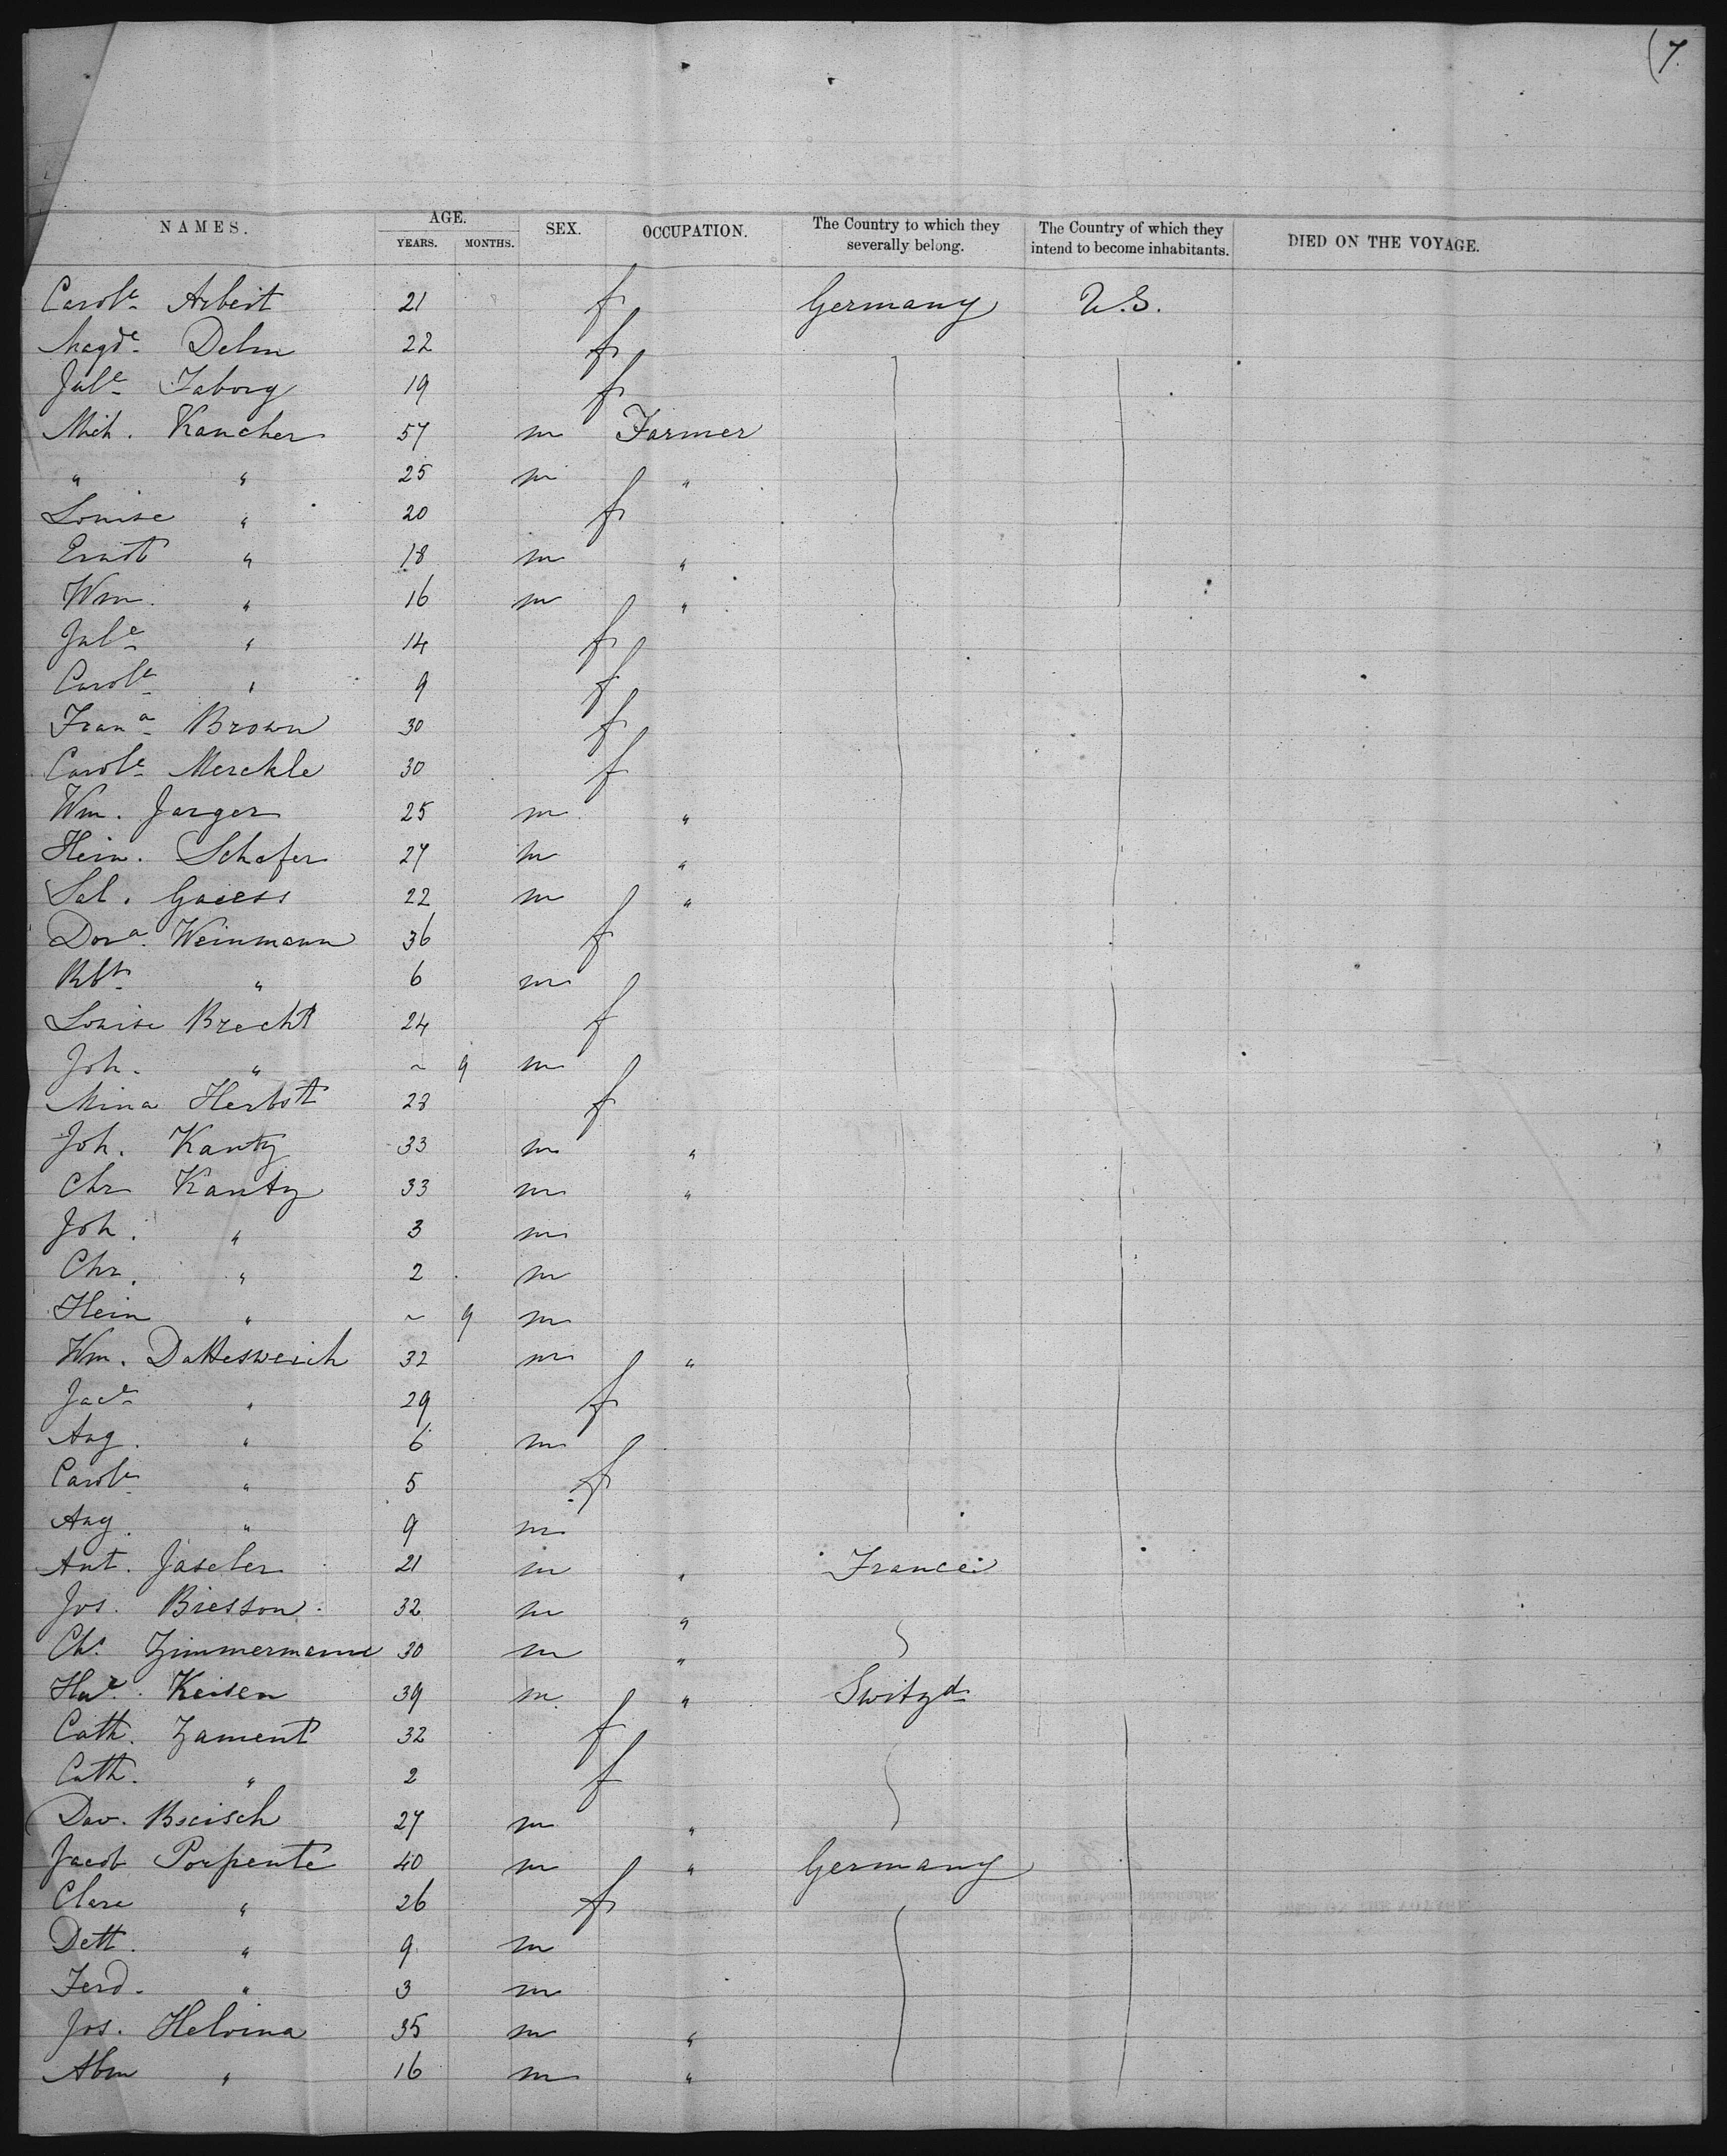 (7.
NAMES. AGE. YEARS. MONTHS. SEX. OCCUPATION. The Country to which they severally belong. The Country of which they intend to become inhabitants. DIED ON THE VOYAGE.
Carole Arbeit 21 f Germany U.S.
Magde Delm 22 f
Jule Jaborg 19 f
Mich. Kancher 57 m Farmer
" " 25 m "
Louise " 20 f
Ernst " 18 m "
Wm. " 16 m "
Jule " 14 f
Carole " 9 f
Frana Brown 30 f
Carole Merckle 30 f
Wm. Jarger 25 m "
Hein. Schafer 27 m "
Sal. 22 m "
Dora Weinmann 36 f
Rbt " 6 m
Louise Brecht 24 f
Joh. " ~ 9 m
Mina Herbott 28 f
Joh. Kantz 33 m "
Chr Kantz 33 m "
Joh. " 3 m
Chr. " 2 m
Hein " ~ 9 m
Wm. Datteswerich 32 m "
Jace " 29 f
Aug. " 6 m
Carole " 5 f
Aug. " 9 m
Ant. Jaseler 21 m " France
Jos. Biesson 32 m "
Chs. Zimmermann 30 m "
Keisen 39 m " Switzd
Cath. Zament 32 f
Cath. " 2 f
Dav. 27 m "
Jacob Porpente 40 m " Germany
Clara " 26 f
Dett. " 9 m
Ferd. " 3 m
Jos. Helvina 35 m "
Abm " 16 m "